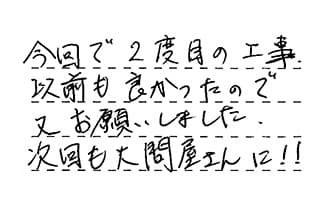 今回で2度目の工事.
以前も良かったので
又お願いしました.
次回も大問屋さんに!!